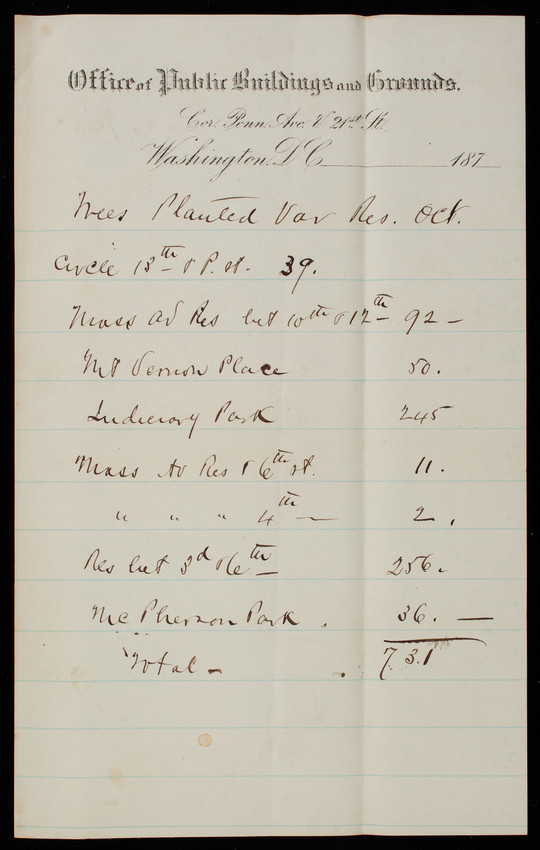 Office of Public Buildings and Grounds.
Cor. Penn. Ave. & 21st St.
Washington, D C 187
Trees Planted Var Res. Oct.
Circle 13th & P. st. 39.
Mass Av Res bet 10th & 12th 92 —
Mt Vernon Place 50.
Judiciary Park 245
Mass Av Res & 6th st. 11.
" " " 4th — 2.
Res bet 3d & 6th 256.
Mc Pherson Park . 36. —
Total - . 731